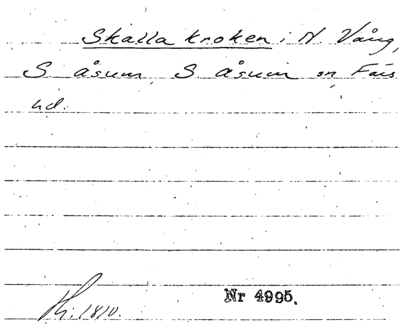 Skalla kroken i N. Vång,
S åsum, S åsum sn, Färs
hd.
1810.
Nr 4995.